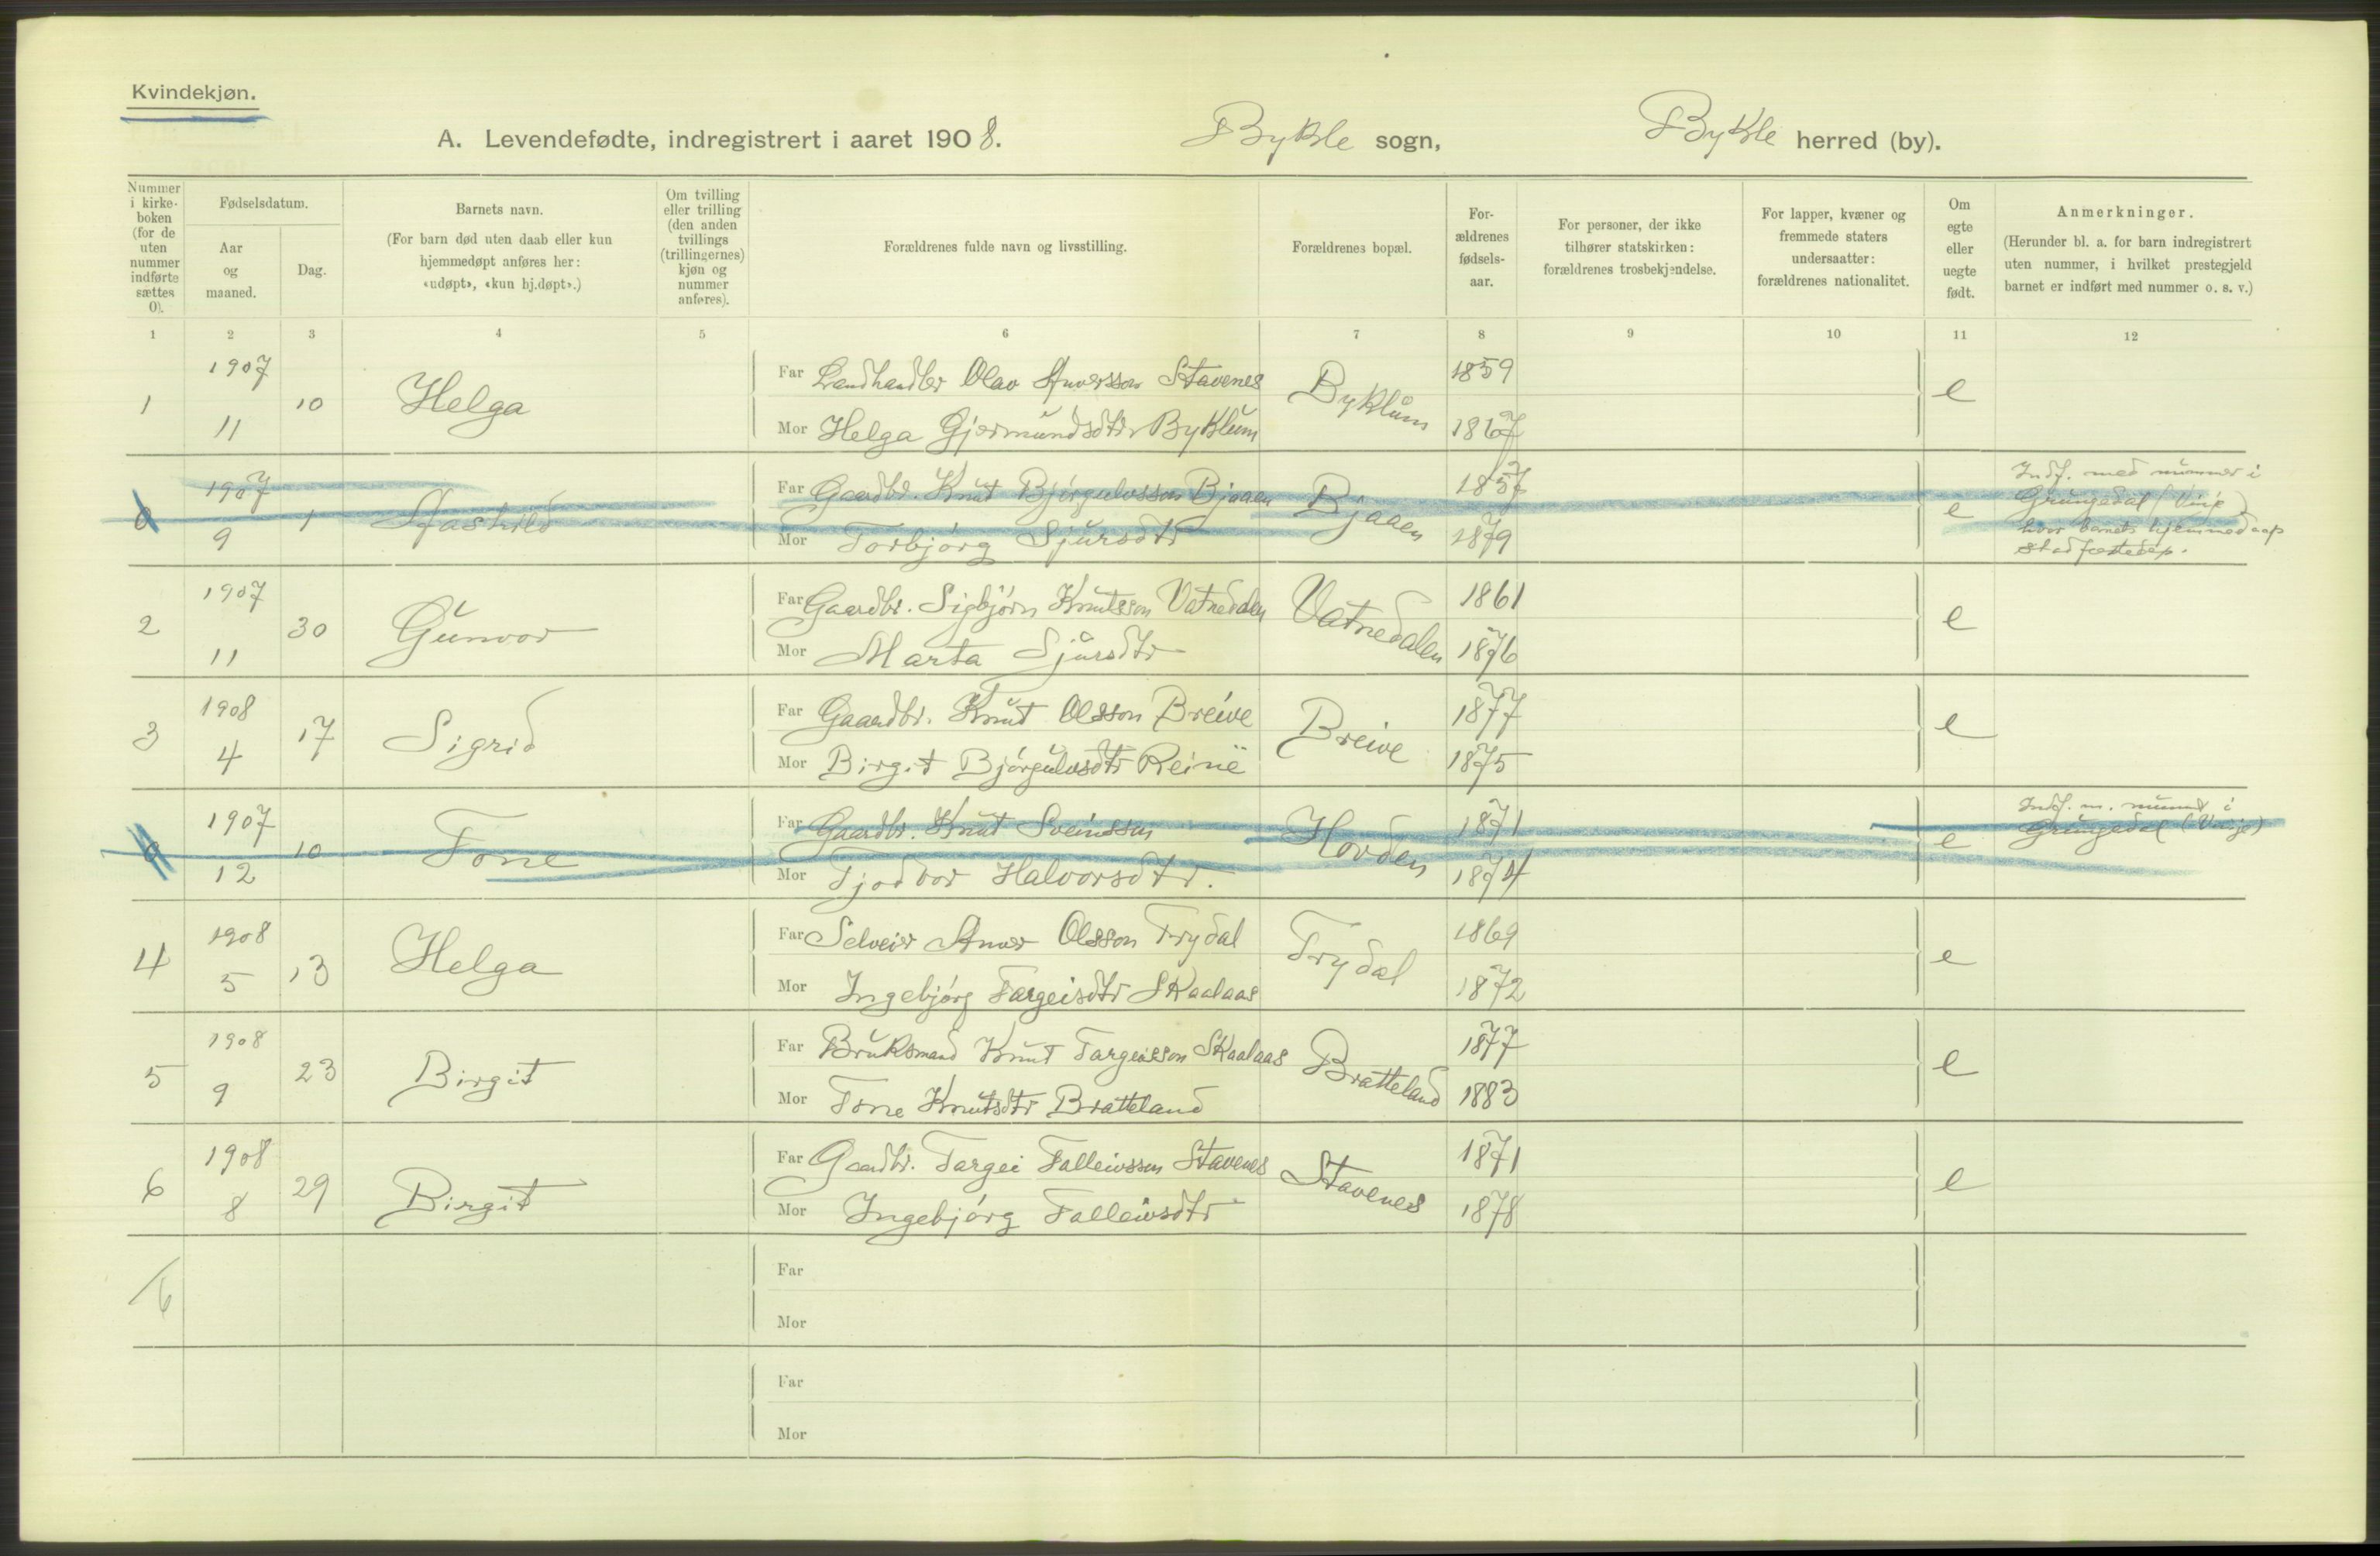 Kvindekjøn.
A. Levendefødte, indregistrert i aaret 1908. Bykle sogn, Bykle herred (by).
Nummer i kirkeboken (for de uten nummer indførte sættes 0).
Fødselsdatum.
Aar og maaned.
Dag.
Barnets navn.
(For barn død uten daab eller kun hjemmedøpt anføres her: «udøpt», «kun hj.døpt».)
Om tvilling eller trilling (den anden tvillings (trillingernes) kjøn og nummer anføres).
Forældrenes fulde navn og livsstilling.
Forældrenes bopæl.
Forældrenes fødselsaar.
For personer, der ikke tilhører statskirken: forældrenes trosbekjendelse.
For lapper, kvæner og fremmede staters undersaatter: forældrenes nationalitet.
Om egte eller uegte født.
Anmerkninger.
(Herunder bl. a. for barn indregistrert uten nummer, i hvilket prestegjeld barnet er indført med nummer o. s. v.)
1 2 3 4 5 6 7 8 9 10 11 12
1 1907 11 10 Helga Far Landhandler Olav Anversson Stavenes Byklum 1859 e
Mor Helga Gjermundsdtr Byklum 1867
0 1907 9 1 Aashild Far Gaardbr. Knut Bjørgulvsson Bjaaen Bjaaen 1857 e Indf. med nummer i
Mor Torbjørg Sjursdtr 1879 Grungedal (Vinje)
hvor barnets hjemmedaap
stadfæstedes.
2 1907 11 30 Gunvor Far Gaardbr. Sigbjørn Knutsson Vatnedalen Vatnedalen 1861 e
Mor Marta Sjursdtr 1876
3 1908 4 17 Sigrid Far Gaardbr. Knut Olsson Breive Breive 1877 e
Mor Birgit Bjørgulvsdtr 1875
0 1907 12 10 Tone Far Gaardbr. Knut Sveinsson Hovden 1871 e Indf. m. nummer i
Mor Tjodvor Halvorsdtr. 1874 Grungedal (Vinje)
4 1908 5 13 Helga Far Selveier Anver Olsson Trydal Trydal 1869 e
Mor Ingebjørg Targeisdtr Skaalaas 1872
5 1908 9 23 Birgit Far Bruksmand Knut Targeisson Skaalaas Bratteland 1877 e
Mor Tone Knutsdtr Bratteland 1883
6 1908 8 29 Birgit Far Gaardbr. Targei Talleivsson Stavenes Stavenes 1871 e
Mor Ingebjørg Talleivsdtr 1878
6 Far
Mor
Far
Mor